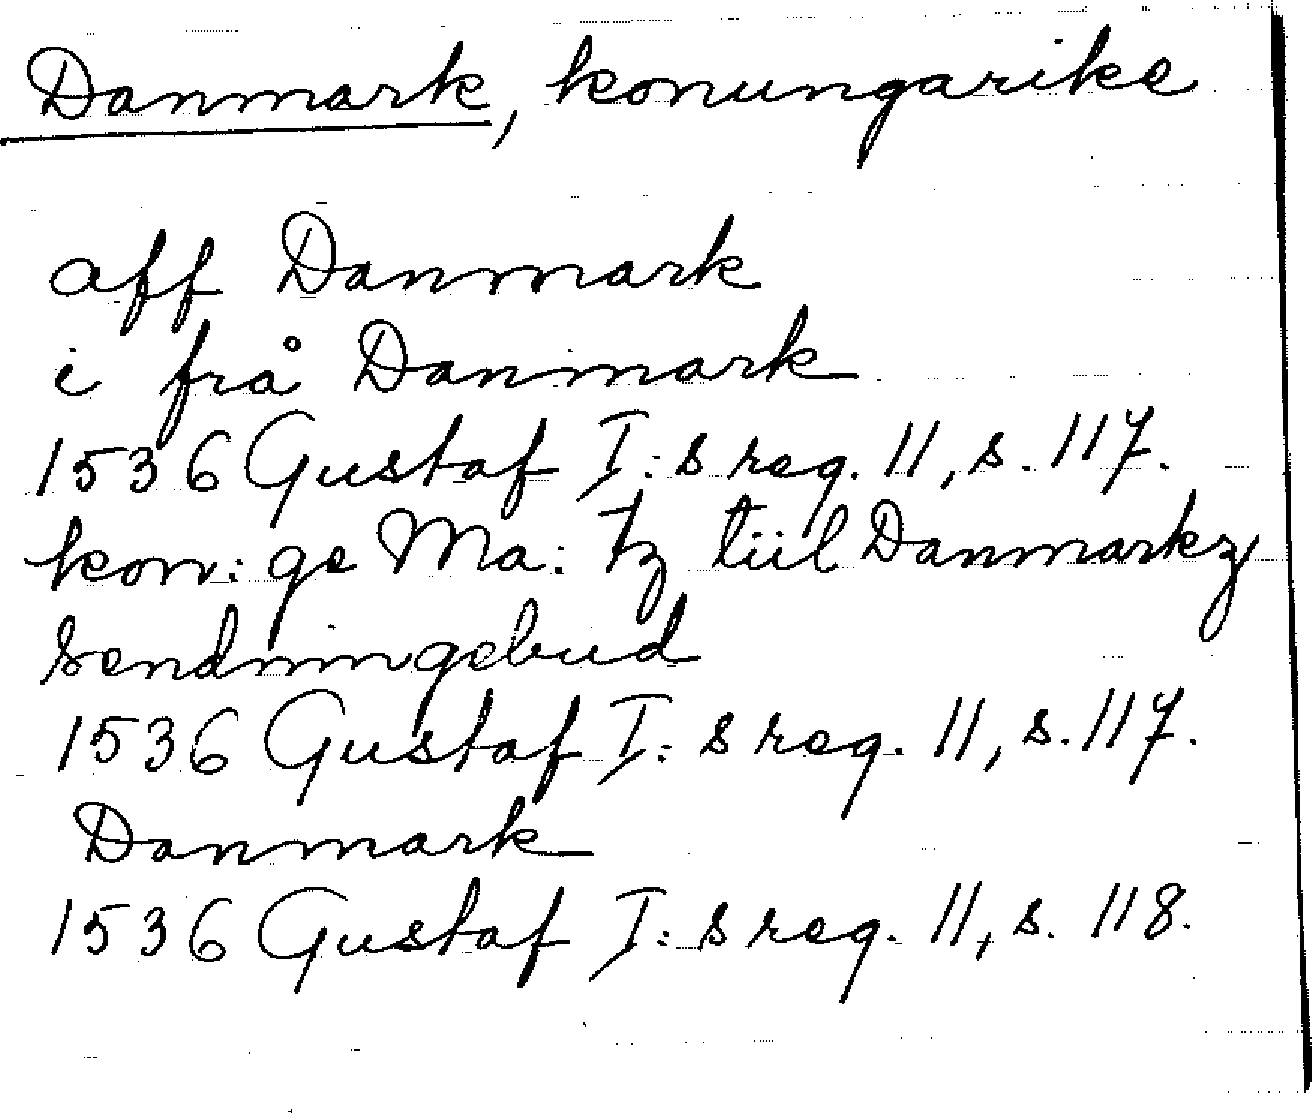 Danmark, konungarike
aff Danmark
i frå Danmark
1536 Gustaf I:s reg. 11, s. 117.
kon: ge Ma: tz tiil Danmarkz
Sendningebud
1536 Gustaf I:s reg. 11, s. 117.
Danmark
1536 Gustaf I:s reg. 11, s. 118.